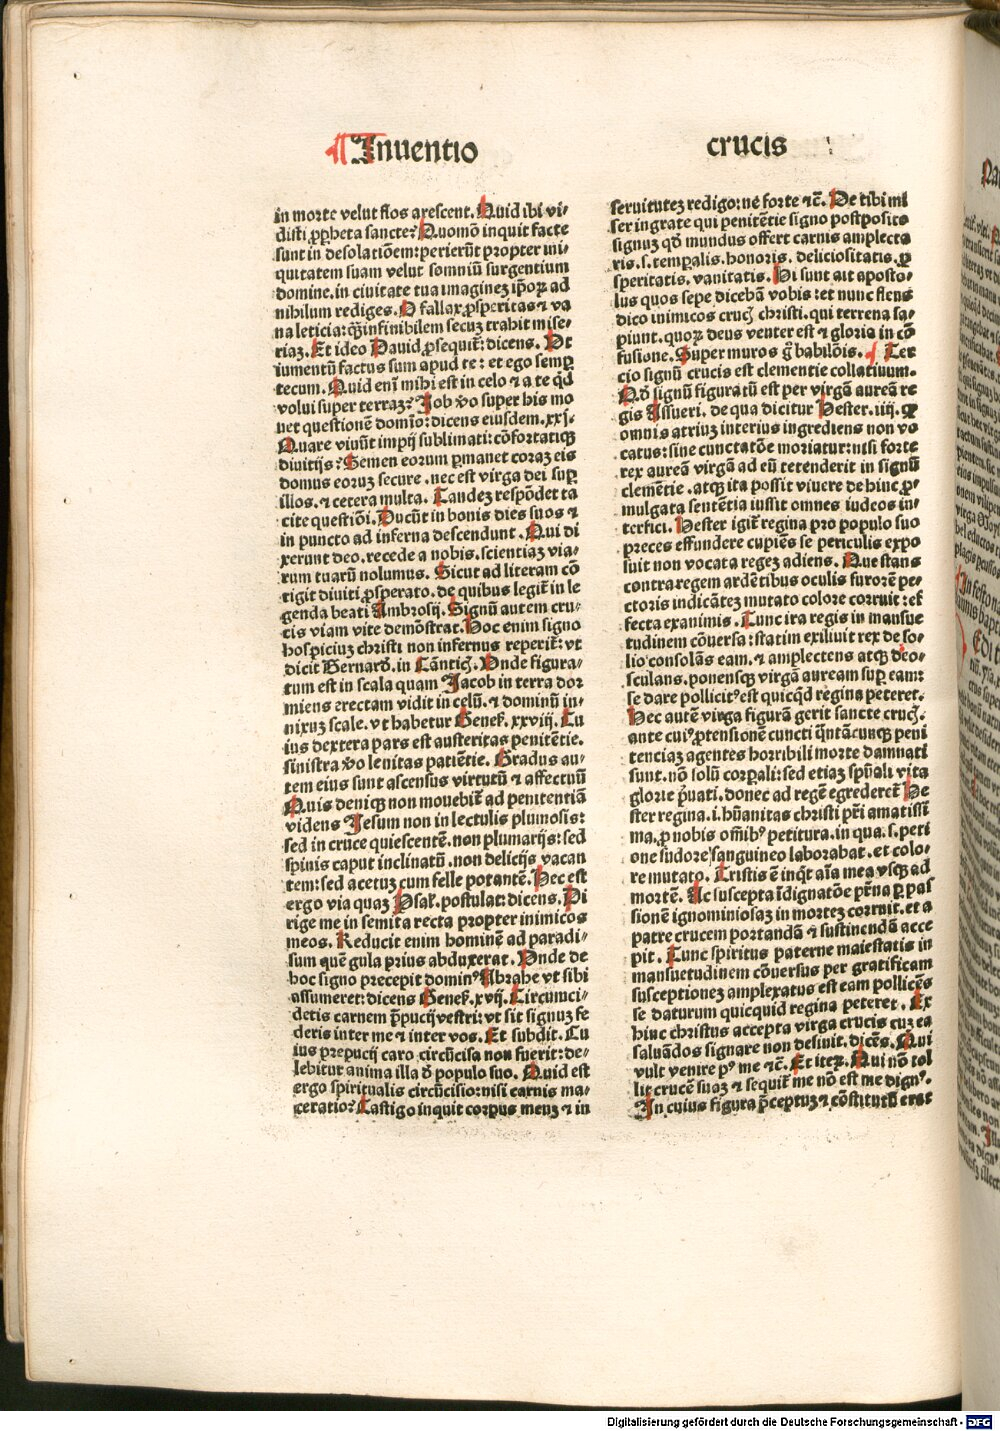 ¶ Inuentio crucis
in morte velut flos arescent. Quid ibi vi⸗
disti ꝓpheta sancte? Quomō inquit facte
sunt in desolatiōem: perierūt propter ini⸗
quitatem suam velut somniū surgentium
domine. in ciuitate tua imaginez ip̄oꝝ ad
nihilum rediges. O fallax ꝓsperitas ⁊ va
na leticia: q̄ infinibilem secuz trahit mise⸗
riaz. Et ideo Dauid ꝓsequit̄: dicens. Vt
iumentū factus sum apud te: et ego semꝑ
tecum. Quid eni̅ mihi est in celo ⁊ a te qd̓
volui super terraz? Iob v̓o super his mo
uet questionē domi̅o: dicens eiusdem. xxj.
Quare viuūt impij sublimati: cōfortatiqꝫ
diuitijs? Semen eorum ꝑmanet coraz eis
domus eoruz secure. nec est virga dei suꝑ
illos. ⁊ cetera multa. Tandez respōdet ta
cite questiōi. Ducūt in bonis dies suos ⁊
in puncto ad inferna descendunt. Qui di
xerunt deo. recede a nobis. scientiaz via⸗
rum tuarū nolumus. Sicut ad literam cō
tigit diuiti ꝓsperato. de quibus legit̄ in le
genda beati Ambrosij. Signū autem cru⸗
cis viam vite demōstrat. Hoc enim signo
hospiciuz christi non infernus reperit̄: vt
dicit Bernard̓. in Cāntic̄. Vnde figura⸗
tum est in scala quam Iacob in terra dor
miens erectam vidit in celū. ⁊ dominū in⸗
nixuz scale. vt habetur Genes̄. xxviij. Cu
ius dextera pars est austeritas penitētie.
sinistra v̓o lenitas patiētie. Gradus au⸗
tem eius sunt ascensus virtutū ⁊ affectuū
Quis deniqꝫ non mouebit̄ ad penitentiā
videns Iesum non in lectulis plumosis:
sed in cruce quiescentē. non plumarijs: sed
spinis caput inclinatū. non delicijs vacan
tem: sed acetuz cum felle potantē. Hec est
ergo via quaz Psal̄. postulat: dicens. Di
rige me in semita recta propter inimicos
meos. Reducit enim hominē ad paradi⸗
sum quē gula prius abduxerat. Vnde de
hoc signo precepit dominꝰ Abrahe vt sibi
assumeret: dicens Genes̄. xvij. Circumci⸗
detis carnem p̄pucij vestri: vt sit signuz fe
deris inter me ⁊ inter vos. Et subdit. Cu
ius prepucij caro circūcisa non fuerit: de⸗
lebitur anima illa d̓ populo suo. Quid est
ergo spiritualis circūcisio: nisi carnis ma⸗
ceratio? Castigo inquit corpus meuz ⁊ in
seruitutez redigo: ne forte ⁊c̄. Ve tibi mi
ser ingrate qui penitētie signo postposito
signuz qd̓ mundus offert carnis amplecta
ris. s. temꝑalis. honoris. deliciositatis. ꝓ
speritatis. vanitatis. Hi sunt ait aposto⸗
lus quos sepe dicebā vobis: et nunc flens
dico inimicos cruc̄ christi. qui terrena sa⸗
piunt. quoꝝ deus venter est ⁊ gloria in cō
fusione. Super muros g̊ babilōis. ¶ Ter
cio signū crucis est clementie collatiuum.
Qd̓ signū figuratū est per virgā aureā re
gis Assueri. de qua dicitur Hester. iiij. Qꝫ
omnis atriuz interius ingrediens non vo
catus: sine cunctatōe moriatur: nisi forte
rex aureā virgā ad eū tetenderit in signū
clemētie. atqꝫ ita possit viuere de hinc ꝓ⸗
mulgata sentētia iussit omnes iudeos in⸗
terfici. Hester igit̄ regina pro populo suo
preces effundere cupiēs se periculis expo
suit non vocata regez adiens. Que stans
contra regem ardētibus oculis furorē pe⸗
ctoris indicātez mutato colore corruit: ef
fecta exanimis. Tunc ira regis in mansue
tudinem cōuersa: statim exiliuit rex de so⸗
lio consolās eam. ⁊ amplectens atqꝫ deo⸗
sculans. ponensqꝫ virgā auream suꝑ eam:
se dare pollicitꝰ est quicqd̓ regina peteret.
Hec autē virga figurā gerit sancte cruc̄.
ante cuiꝰ ꝓtensionē cuncti q̄ntacunqꝫ peni
tenciaz agentes horribili morte damnati
sunt. nō solū corꝑali: sed etiaz sp̄uali vita
glorie p̄uati. donec ad regē egrederet̄ He
ster regina. i. hūanitas christi pr̄i amatissi̅
ma. ꝓ nobis om̄ibꝰ petitura. in qua. s. peti
one sudore sanguineo laborabat. et colo⸗
re mutato. Tristis ē inq̄t aīa mea vsqꝫ ad
mortē. Ac suscepta i̅dignatōe pr̄na ꝑ pas
sionē ignominiosaz in mortez corruit. et a
patre crucem portandā ⁊ sustinendā acce
pit. Tunc spiritus paterne maiestatis in
mansuetudinem cōuersus per gratificam
susceptionez amplexatus est eam pollicēs
se daturum quicquid regina peteret. Ex
hinc christus accepta virga crucis cuz ea
saluādos signare non desinit. dicēs. Qui
vult venire pꝰ me ⁊c̄. Et iteꝝ. Qui nō tol
lit crucē suaz ⁊ sequit̄ me nō est me dignꝰ.
In cuius figura p̄ceptuz ⁊ cōstitutū erat
Digitalisierung gefördert durch die Deutsche Forschungsgemeinschaft - DFG